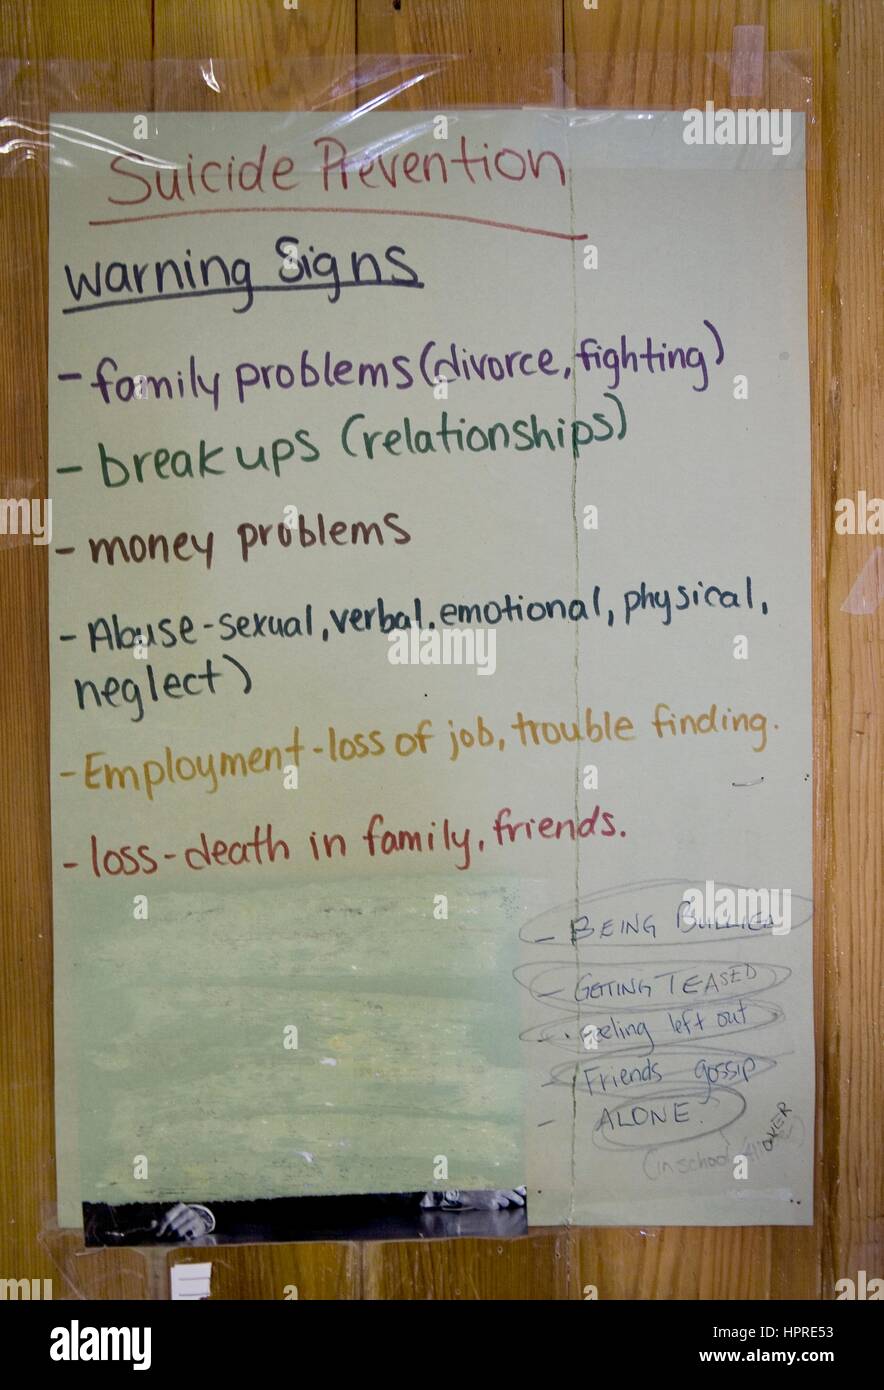 Suicide Prevention
Warning Signs
- family problems (divorce, fighting)
- break ups (relationships)
- money problems
- Abuse - sexual, verbal, emotional, physical,
neglect)
- Employment - loss of job, trouble finding.
- loss - death in family, friends.
- BEING BULLIED
- GETTING TEASED
- . Feeling left out
- Friends gossip
- ALONE.
(in school
OVER
alamy
a alamy stock photo
Image ID: HPRE53
www.alamy.com